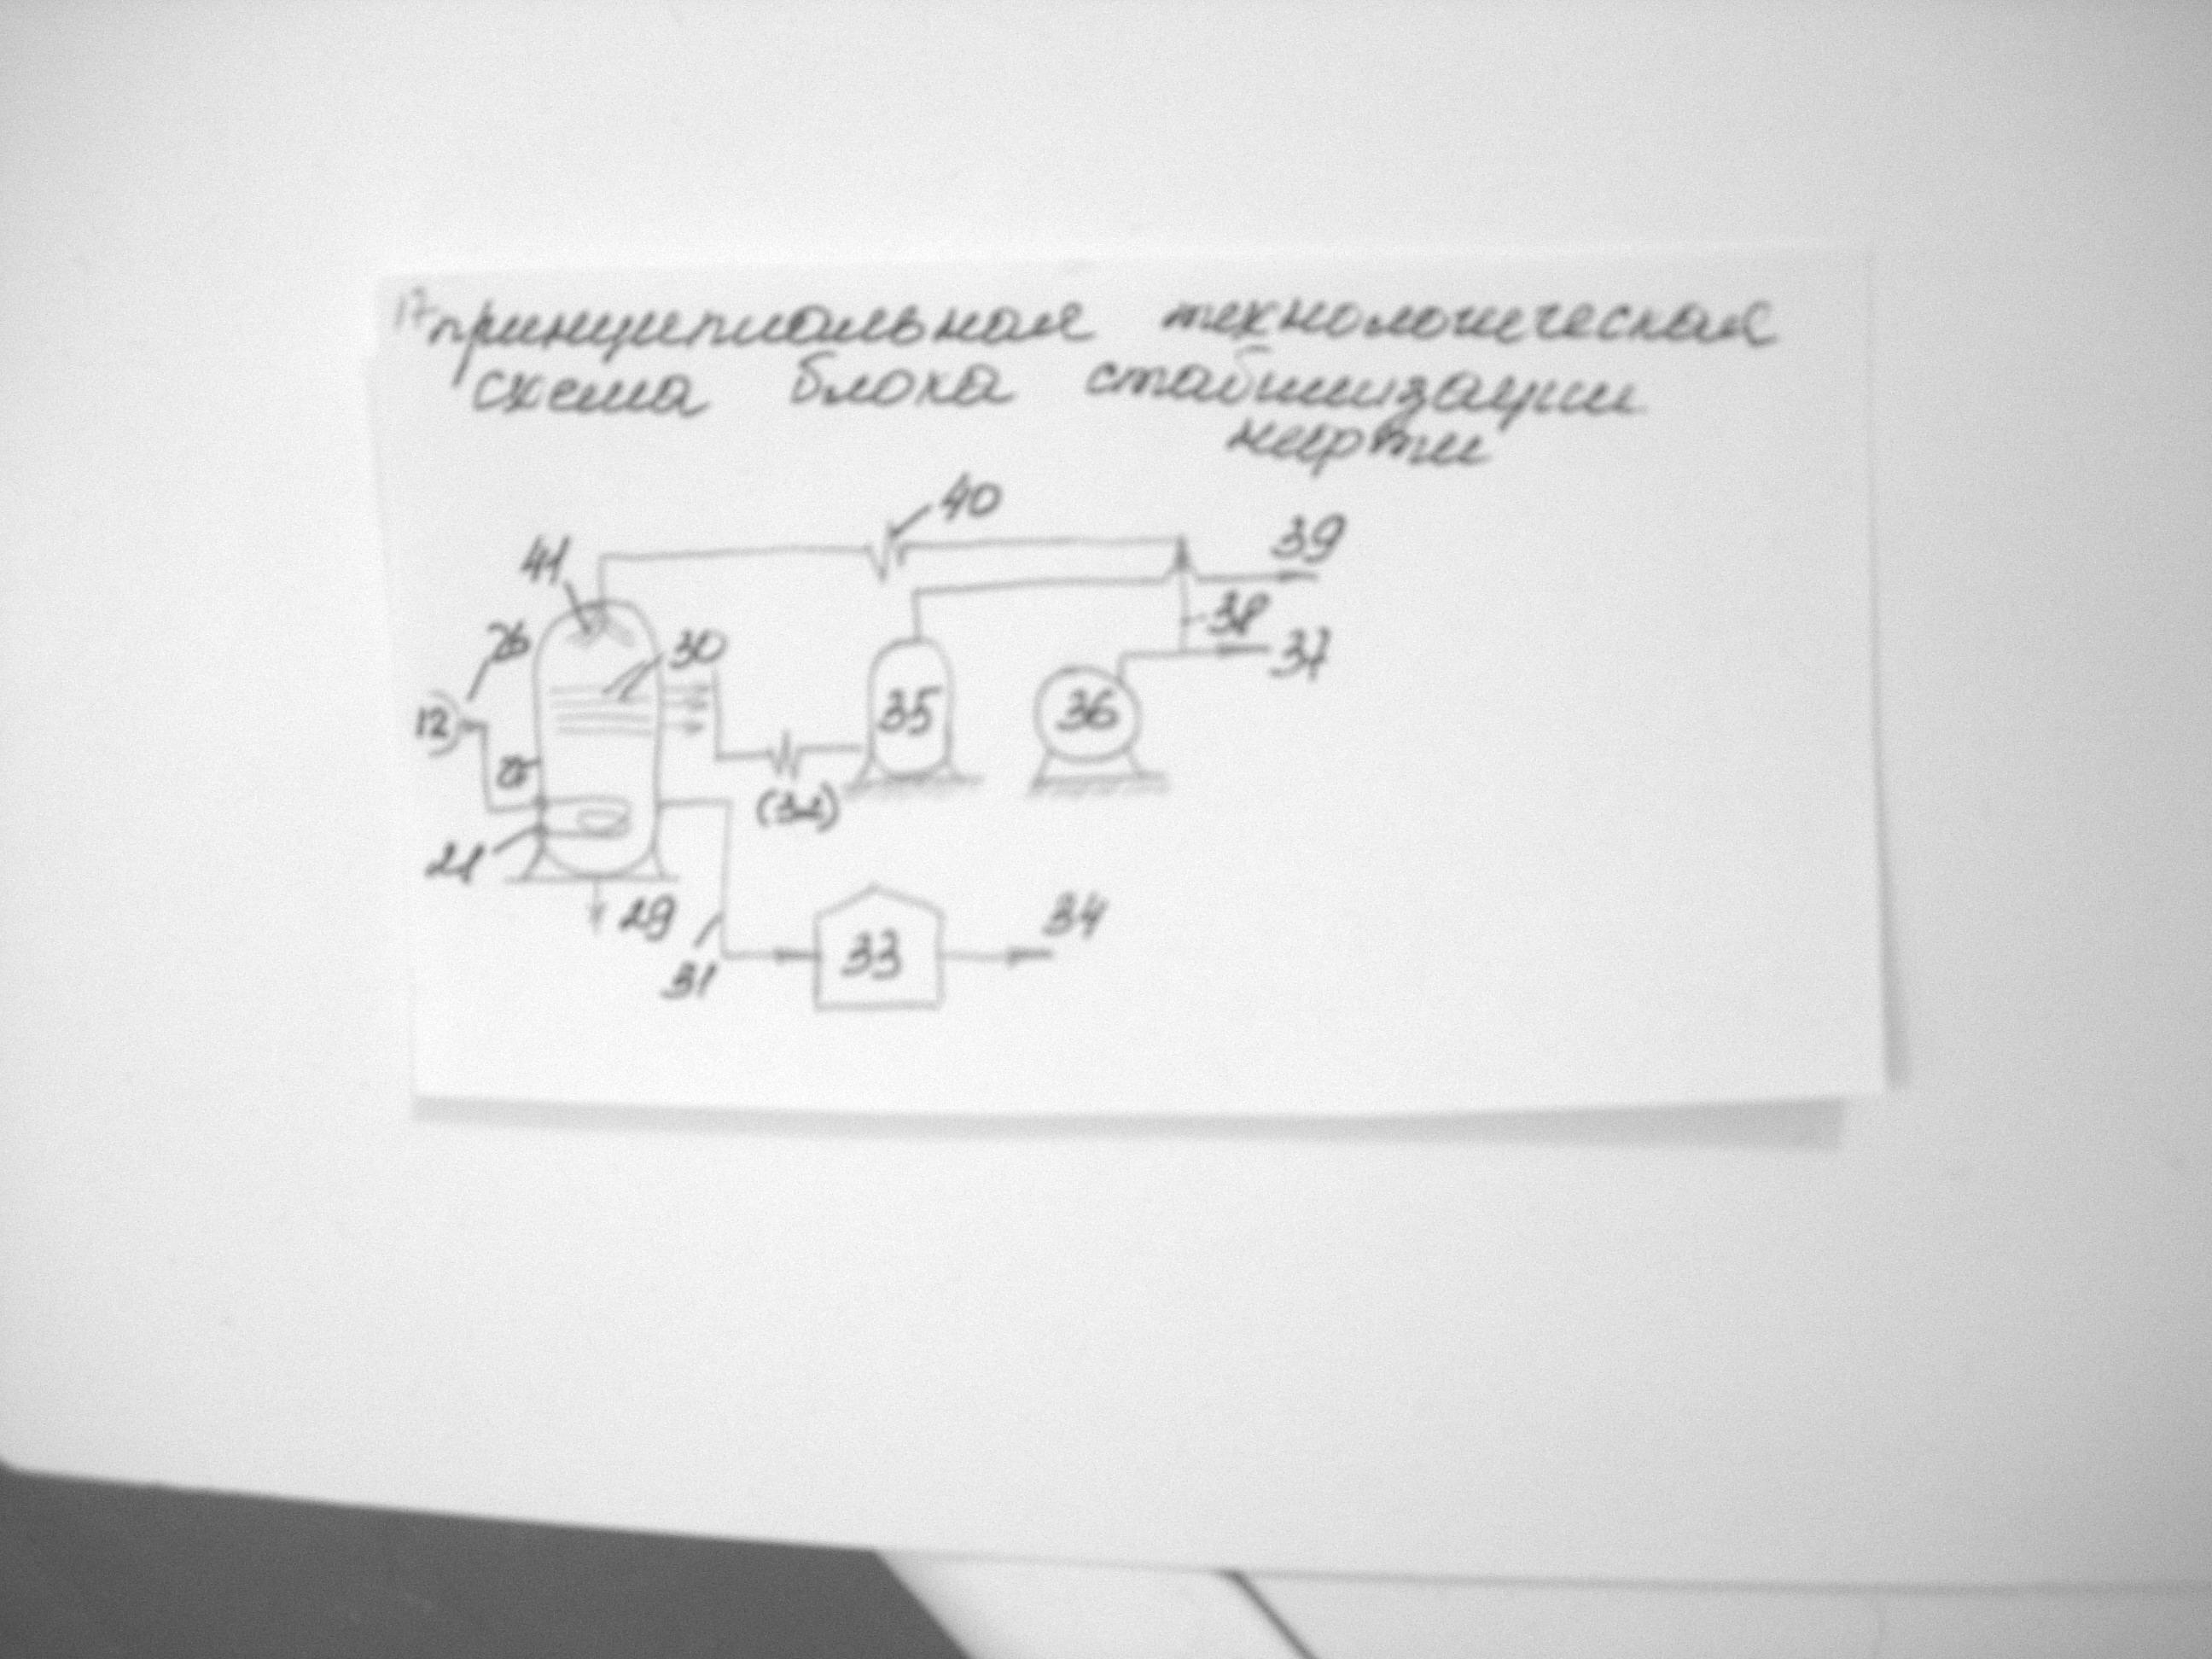 17. принципиальная технологическая
схема блока стабилизации
нефти
40
41
39
26
30
38
37
12
35
36
(32)
29
34
31
33